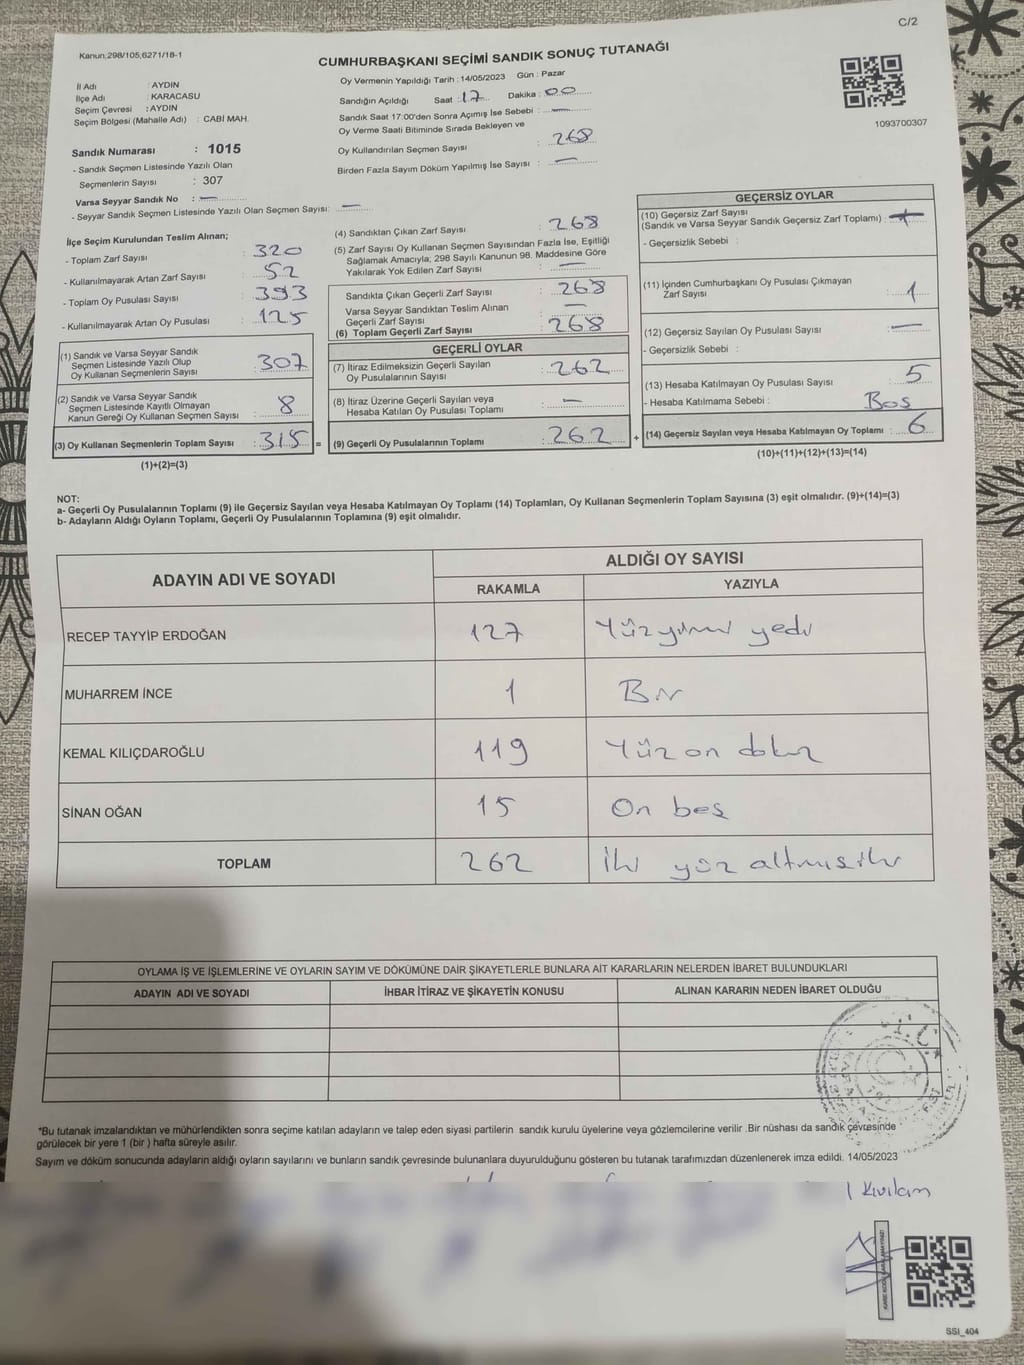 C/2
Kanun:298/105,6271/18-1
CUMHURBAŞKANI SEÇİMİ SANDIK SONUÇ TUTANAĞI
İl Adı : AYDIN
İlçe Adı : KARACASU
Seçim Çevresi : AYDIN
Seçim Bölgesi (Mahalle Adı) : CABİ MAH.
Sandık Numarası : 1015
- Sandık Seçmen Listesinde Yazılı Olan
Seçmenlerin Sayısı : 307
Varsa Seyyar Sandık No : —
- Seyyar Sandık Seçmen Listesinde Yazılı Olan Seçmen Sayısı: —
Oy Vermenin Yapıldığı Tarih : 14/05/2023 Gün : Pazar
Sandığın Açıldığı Saat : 17 Dakika : 00
Sandık Saat 17:00'den Sonra Açımış İse Sebebi : —
Oy Verme Saati Bitiminde Sırada Bekleyen ve
Oy Kullandırılan Seçmen Sayısı : 268
Birden Fazla Sayım Döküm Yapılmış İse Sayısı : —
1093700307
İlçe Seçim Kurulundan Teslim Alınan;
- Toplam Zarf Sayısı : 320
- Kullanılmayarak Artan Zarf Sayısı : 52
- Toplam Oy Pusulası Sayısı : 393
- Kullanılmayarak Artan Oy Pusulası : 125
(1) Sandık ve Varsa Seyyar Sandık
Seçmen Listesinde Yazılı Olup
Oy Kullanan Seçmenlerin Sayısı : 307
(2) Sandık ve Varsa Seyyar Sandık
Seçmen Listesinde Kayıtlı Olmayan
Kanun Gereği Oy Kullanan Seçmen Sayısı : 8
(3) Oy Kullanan Seçmenlerin Toplam Sayısı : 315 =
(1)+(2)=(3)
(4) Sandıktan Çıkan Zarf Sayısı : 268
(5) Zarf Sayısı Oy Kullanan Seçmen Sayısından Fazla İse, Eşitliği
Sağlamak Amacıyla; 298 Sayılı Kanunun 98. Maddesine Göre
Yakılarak Yok Edilen Zarf Sayısı : —
Sandıkta Çıkan Geçerli Zarf Sayısı : 268
Varsa Seyyar Sandıktan Teslim Alınan
Geçerli Zarf Sayısı : —
(6) Toplam Geçerli Zarf Sayısı : 268
GEÇERLİ OYLAR
(7) İtiraz Edilmeksizin Geçerli Sayılan
Oy Pusulalarının Sayısı : 262
(8) İtiraz Üzerine Geçerli Sayılan veya
Hesaba Katılan Oy Pusulası Toplamı : —
(9) Geçerli Oy Pusulalarının Toplamı : 262 +
GEÇERSİZ OYLAR
(10) Geçersiz Zarf Sayısı
(Sandık ve Varsa Seyyar Sandık Geçersiz Zarf Toplamı) :
- Geçersizlik Sebebi :
(11) İçinden Cumhurbaşkanı Oy Pusulası Çıkmayan
Zarf Sayısı : 1
(12) Geçersiz Sayılan Oy Pusulası Sayısı : —
- Geçersizlik Sebebi :
(13) Hesaba Katılmayan Oy Pusulası Sayısı : 5
- Hesaba Katılmama Sebebi : Boş
(14) Geçersiz Sayılan veya Hesaba Katılmayan Oy Toplamı : 6
(10)+(11)+(12)+(13)=(14)
NOT:
a- Geçerli Oy Pusulalarının Toplamı (9) ile Geçersiz Sayılan veya Hesaba Katılmayan Oy Toplamı (14) Toplamları, Oy Kullanan Seçmenlerin Toplam Sayısına (3) eşit olmalıdır. (9)+(14)=(3)
b- Adayların Aldığı Oyların Toplamı, Geçerli Oy Pusulalarının Toplamına (9) eşit olmalıdır.
ADAYIN ADI VE SOYADI
ALDIĞI OY SAYISI
RAKAMLA YAZIYLA
RECEP TAYYİP ERDOĞAN 127 Yüzyirmi yedi
MUHARREM İNCE 1 Bir
KEMAL KILIÇDAROĞLU 119 Yüz on dokuz
SİNAN OĞAN 15 On beş
TOPLAM 262 İki yüz altmışiki
OYLAMA İŞ VE İŞLEMLERİNE VE OYLARIN SAYIM VE DÖKÜMÜNE DAİR ŞİKAYETLERLE BUNLARA AİT KARARLARIN NELERDEN İBARET BULUNDUKLARI
ADAYIN ADI VE SOYADI İHBAR İTİRAZ VE ŞİKAYETİN KONUSU ALINAN KARARIN NEDEN İBARET OLDUĞU
*Bu tutanak imzalandıktan ve mühürlendikten sonra seçime katılan adayların ve talep eden siyasi partilerin sandık kurulu üyelerine veya gözlemcilerine verilir .Bir nüshası da sandık çevresinde
görülecek bir yere 1 (bir ) hafta süreyle asılır.
Sayım ve döküm sonucunda adayların aldığı oyların sayılarını ve bunların sandık çevresinde bulunanlara duyurulduğunu gösteren bu tutanak tarafımızdan düzenlenerek imza edildi. 14/05/2023
SSI_404